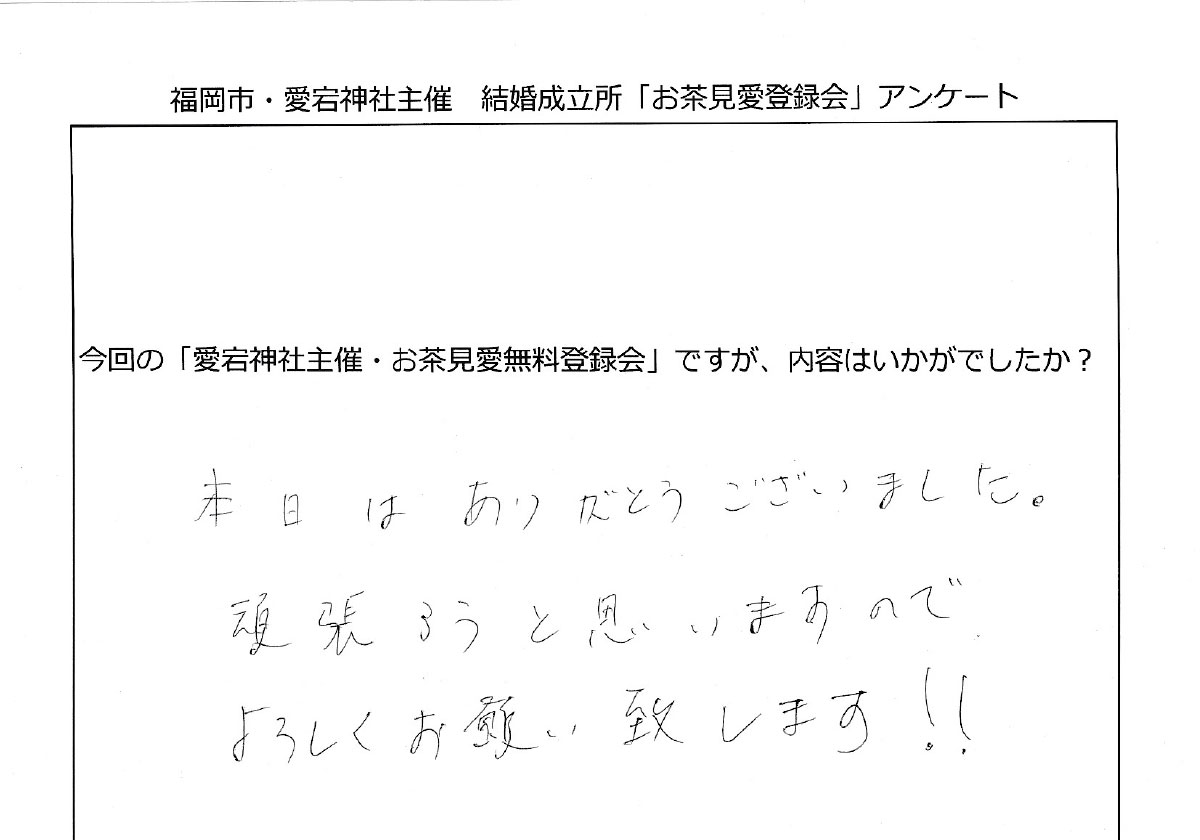 福岡市・愛宕神社主催　結婚成立所「お茶見愛登録会」アンケート
今回の「愛宕神社主催・お茶見愛無料登録会」ですが、内容はいかがでしたか？
本日はありがとうございました。
頑張ろうと思いいますので
よろしくお願い致します!!